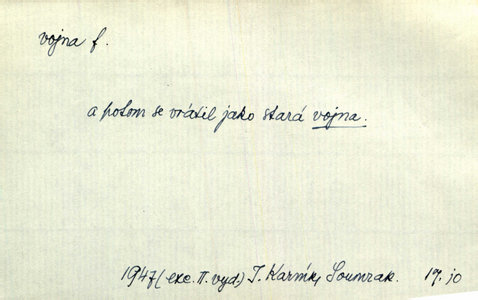 vojna f.
a potom se vrátil jako stará vojna.
1947 (exc. II. vyd.) J. Karník, Soumrak. 19. jo